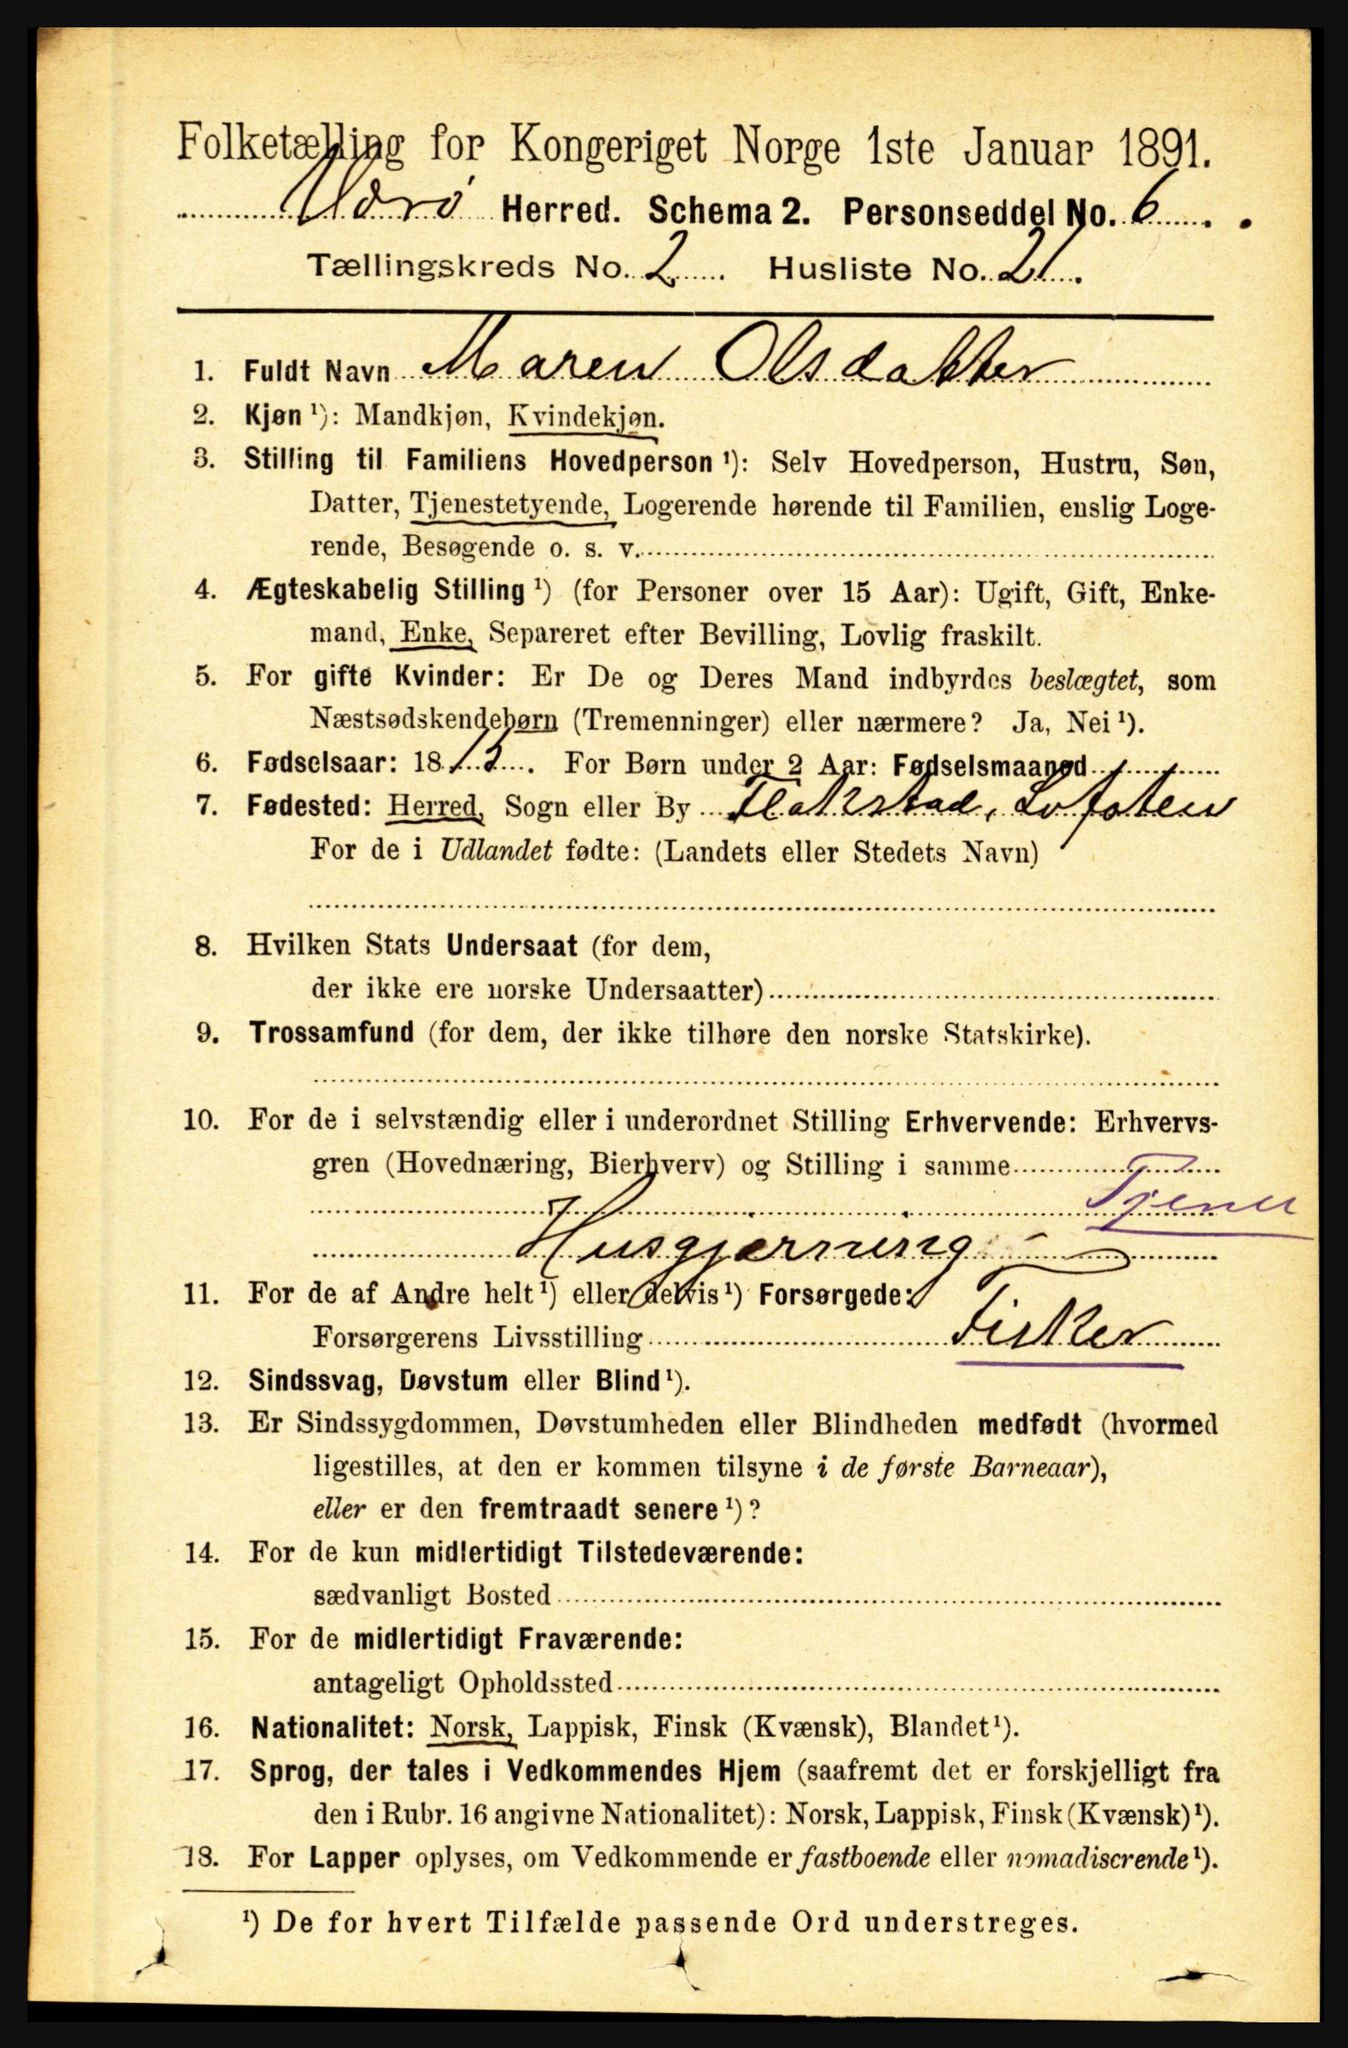 Folketælling for Kongeriget Norge 1ste Januar 1891.
Værø Herred. Schema 2. Personseddel No. 6
Tællingskreds No. 2 Husliste No. 21.
1. Fuldt Navn Maren Olsdatter
2. Kjøn ¹): Mandkjøn, Kvindekjøn.
3. Stilling til Familiens Hovedperson ¹): Selv Hovedperson, Hustru, Søn,
Datter, Tjenestetyende, Logerende hørende til Familien, enslig Loge-
rende, Besøgende o. s. v.
4. Ægteskabelig Stilling ¹) (for Personer over 15 Aar): Ugift, Gift, Enke-
mand, Enke, Separeret efter Bevilling, Lovlig fraskilt.
5. For gifte Kvinder: Er De og Deres Mand indbyrdes beslægtet, som
Næstsødskendebørn (Tremenninger) eller nærmere? Ja, Nei ¹).
6. Fødselsaar: 18 . For Børn under 2 Aar: Fødselsmaaned
7. Fødested: Herred, Sogn eller By Flakstad, Lofoten
For de i Udlandet fødte: (Landets eller Stedets Navn)
8. Hvilken Stats Undersaat (for dem,
der ikke ere norske Undersaatter)
9. Trossamfund (for dem, der ikke tilhøre den norske Statskirke).
10. For de i selvstændig eller i underordnet Stilling Erhvervende: Erhvervs-
gren (Hovednæring, Bierhverv) og Stilling i samme
Tjener
Husgjerning
11. For de af Andre helt ¹) eller delvis ¹) Forsørgede:
Forsørgerens Livsstilling Fisker
12. Sindssvag, Døvstum eller Blind ¹).
13. Er Sindssygdommen, Døvstumheden eller Blindheden medfødt (hvormed
ligestilles, at den er kommen tilsyne i de første Barneaar),
eller er den fremtraadt senere ¹)?
14. For de kun midlertidigt Tilstedeværende:
sædvanligt Bosted
15. For de midlertidigt Fraværende:
antageligt Opholdssted
16. Nationalitet: Norsk, Lappisk, Finsk (Kvænsk), Blandet ¹).
17. Sprog, der tales i Vedkommendes Hjem (saafremt det er forskjelligt fra
den i Rubr. 16 angivne Nationalitet): Norsk, Lappisk, Finsk (Kvænsk) ¹).
18. For Lapper oplyses, om Vedkommende er fastboende eller nomadiserende ¹).
¹) De for hvert Tilfælde passende Ord understreges.